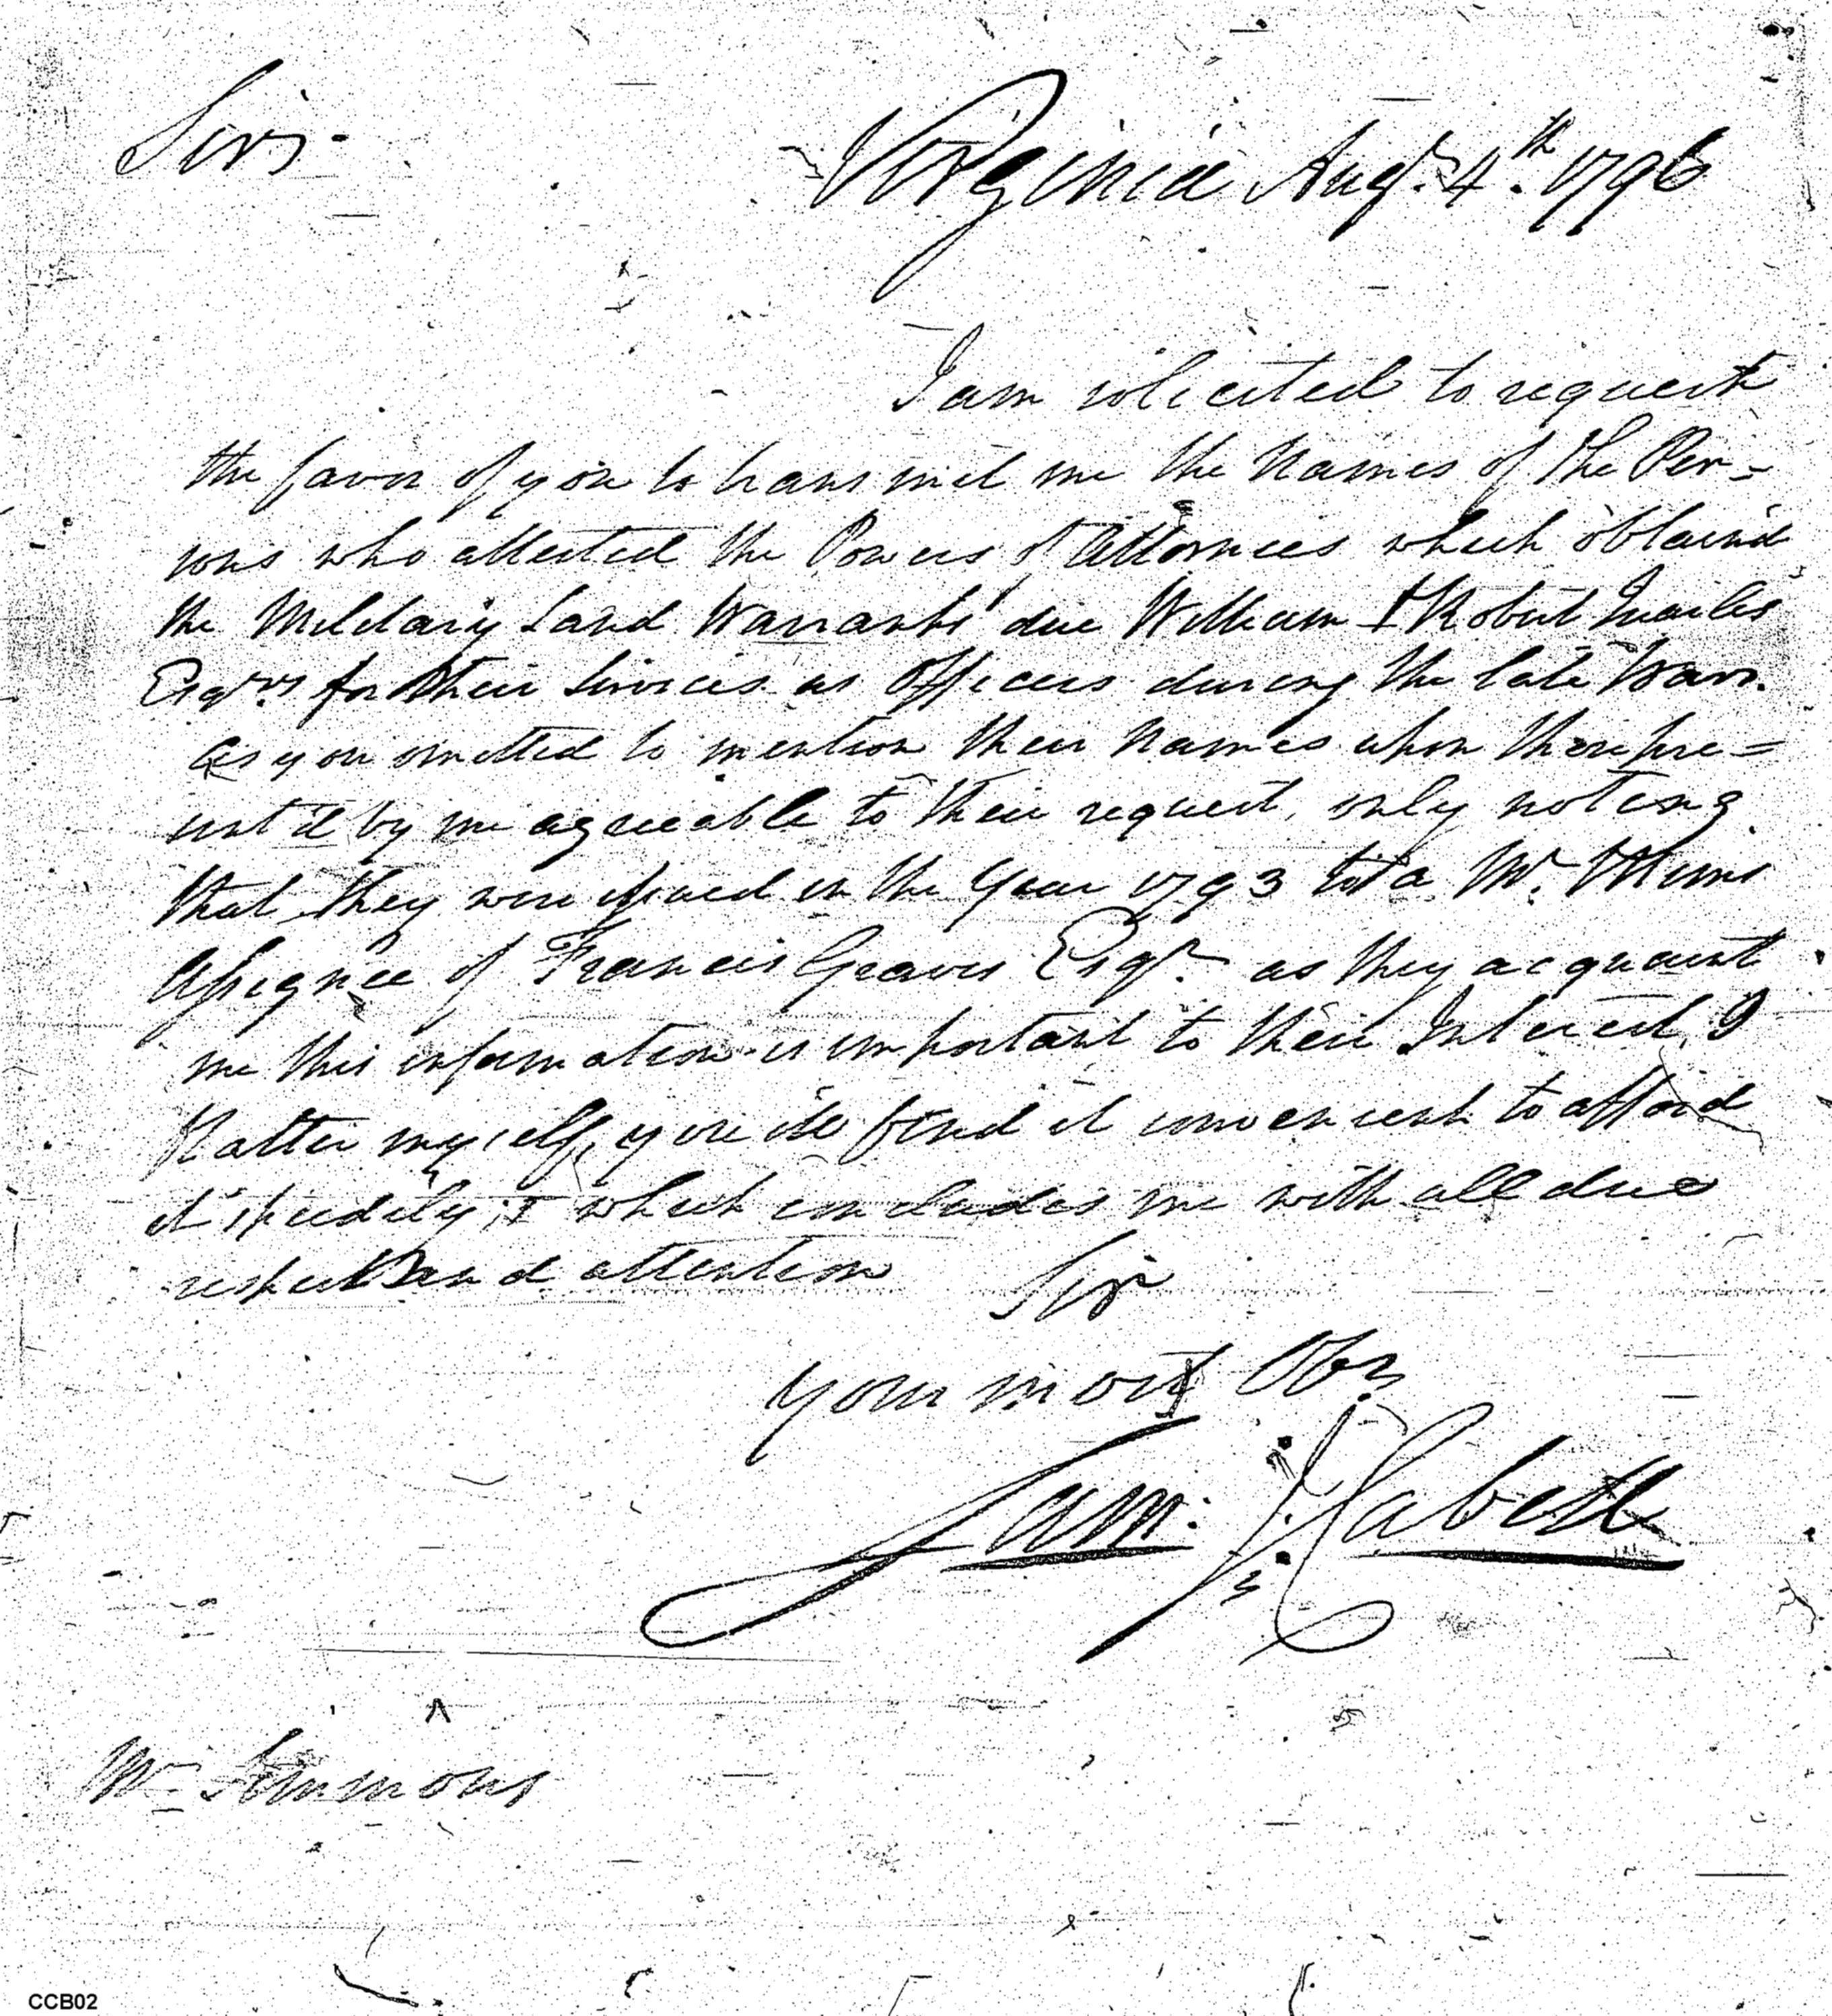 Sir,
Virginia Augt. 4th. 1796
I am solicited to request
the favor of you to transmit me the Names of the Per-
sons who attested the Powers of Attornies which obtaind
the Military Land Warrants due William & Robert Quarles
Esqrs. for their Services as Officers during the late War.
as you omitted to mention their names upon pre=
sent'd by me agreeable to their request, only noting
that they were issued in the Year 1793 to a Mr. Mims
Assignee of Francis Graves Esqr. as they acquaint
me this information is important to their Interest, I
flatter myself, you will find it convenient to afford
it speedily; which concludes me with all due
respect and attention Sir
your most Obt.
Sam: J. Cabell
Mr. Simmons
CCB02